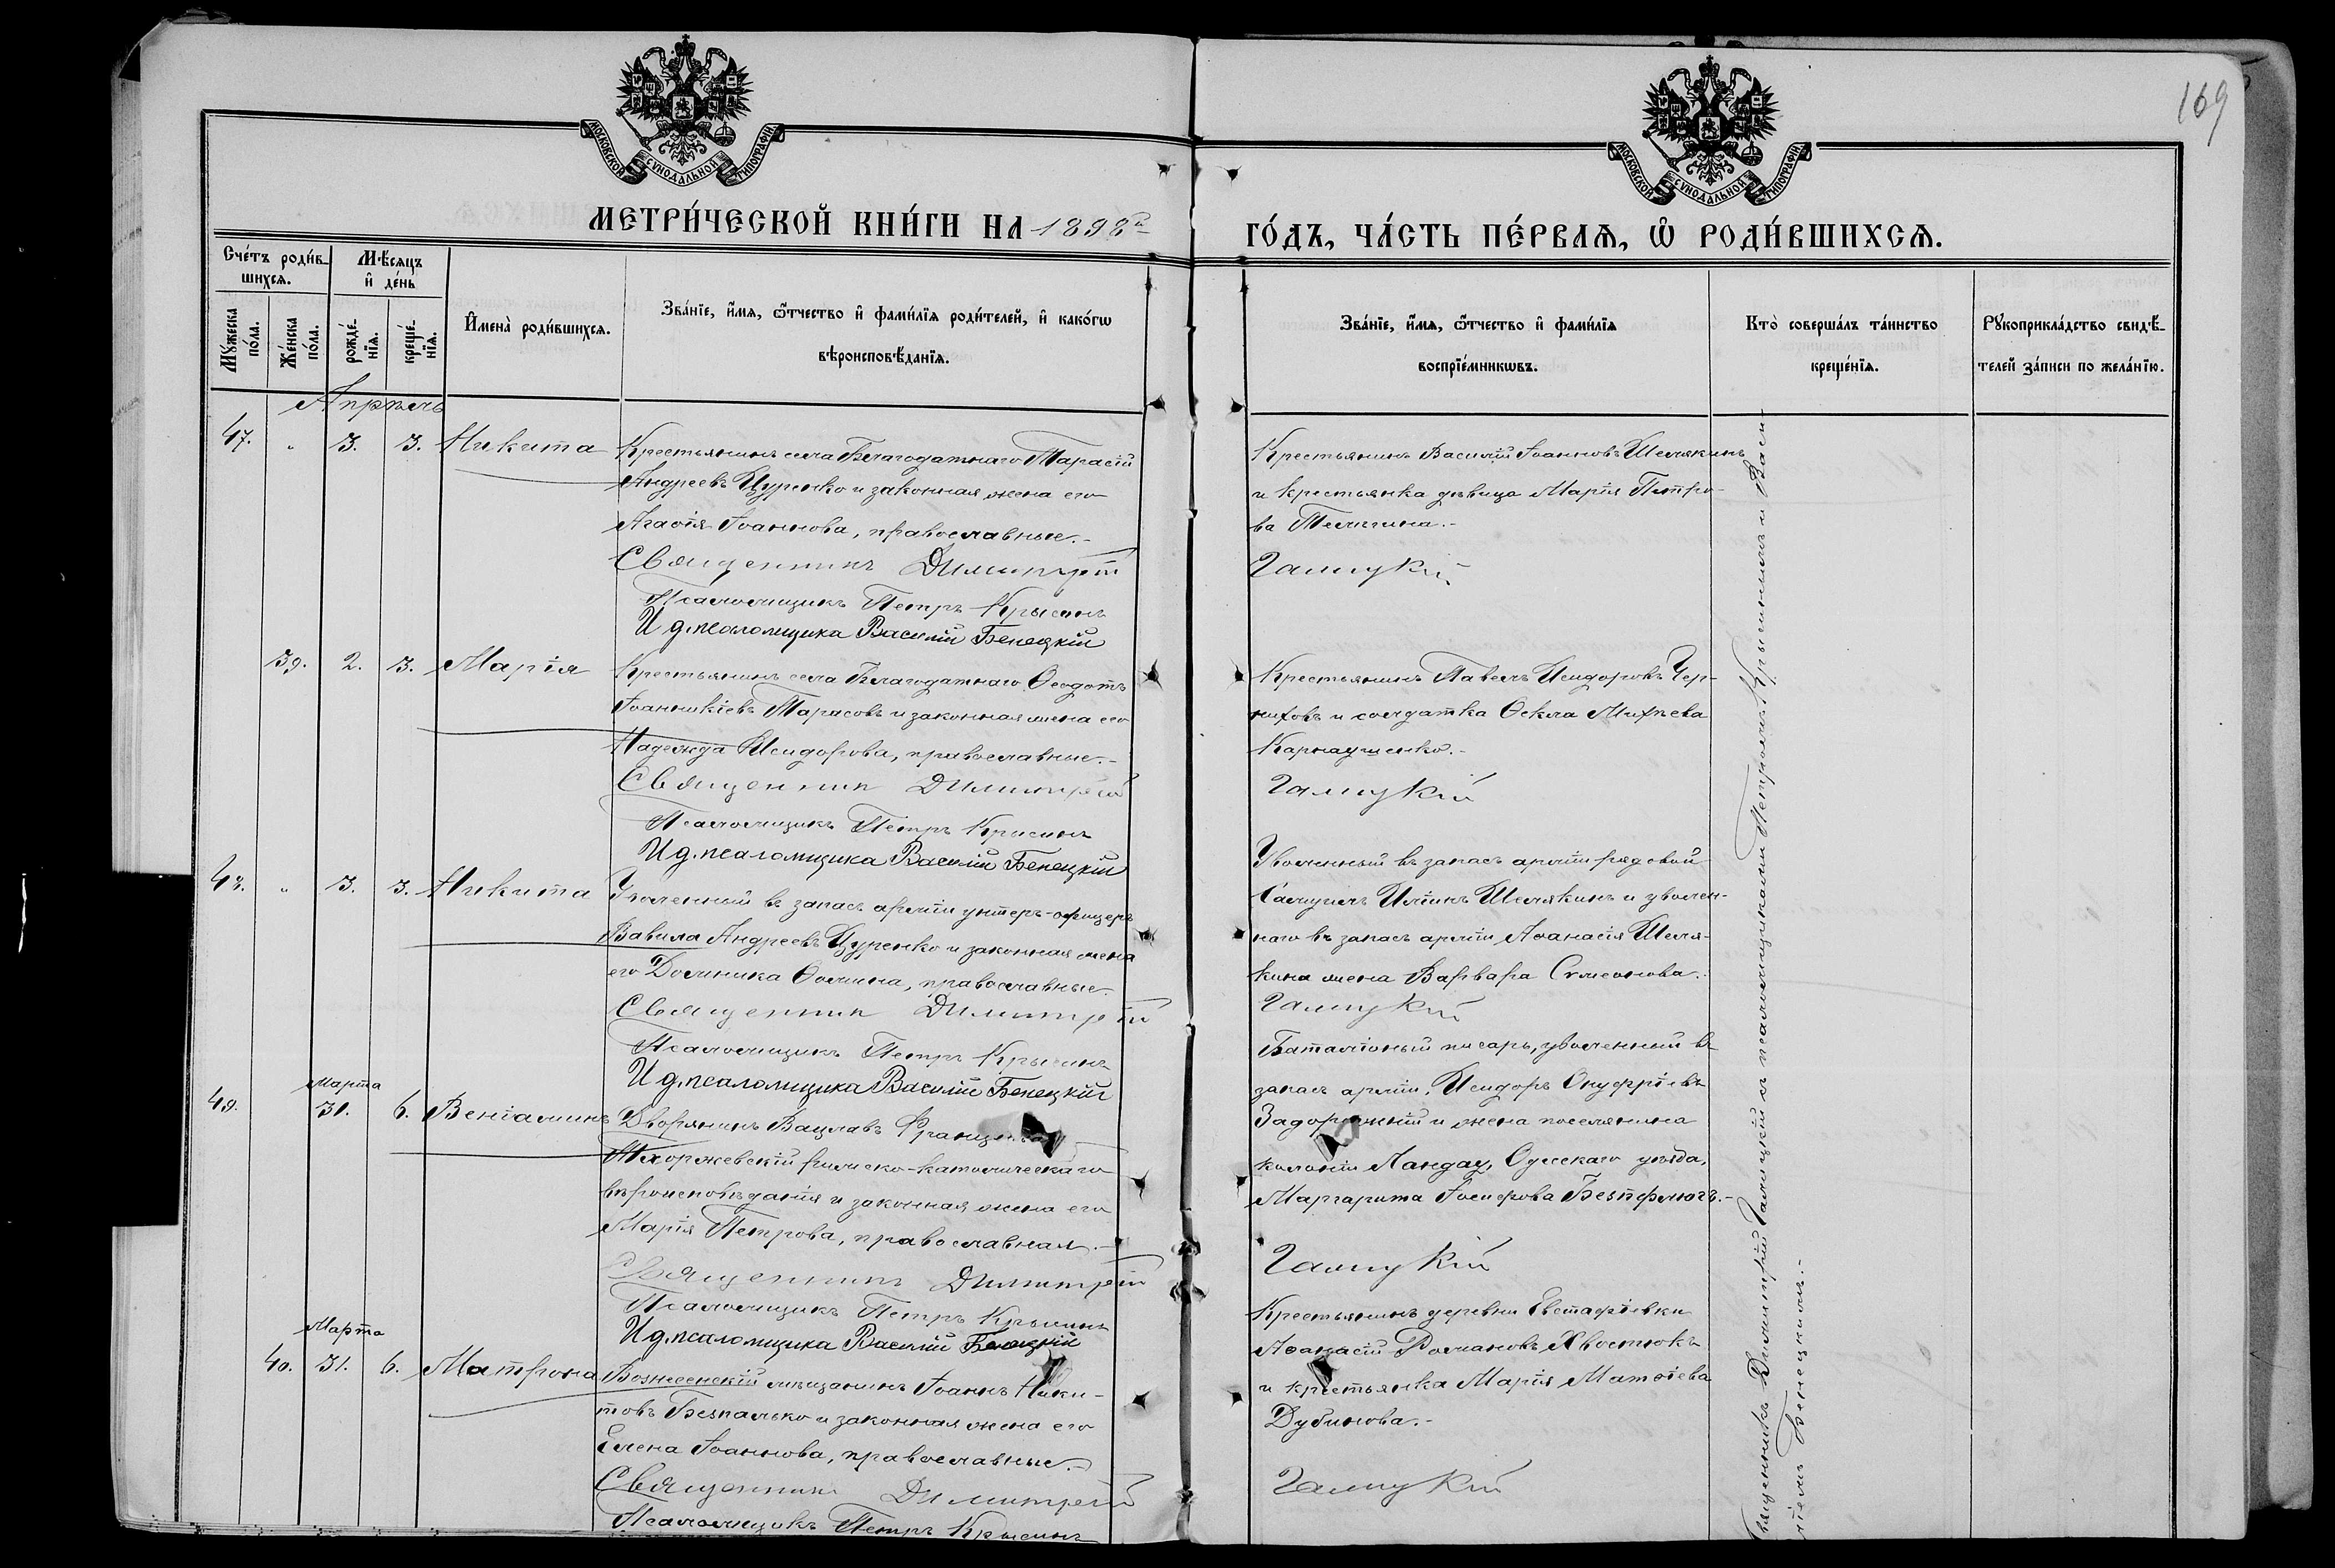 169
МОСКОВСКОЙ СУНОДАЛЬНОЙ ТИПОГРАФІИ
МОСКОВСКОЙ СУНОДАЛЬНОЙ ТИПОГРАФІИ
МЕТРИ́ЧЕСКОЙ КНИ́ГИ НА 1898й
ГО́ДЪ, ЧА́СТЬ ПЕ́РВАѦ, Ѡ҆ РОДИ́ВШИХСѦ.
Сче́тъ роди́в-
шихсѧ.
Мѣ́сѧцъ
и҆ де́нь
Мꙋ́жеска
по́ла.
Же́нска
по́ла.
рожде́-
нїѧ.
креще́-
нїѧ.
И҆мена̀ роди́вшихсѧ.
Зва́нїе, и҆́мѧ, ѻ҆́тчество и҆ фами́лїѧ роди́телей, и҆ како́гѡ
вѣроисповѣ́данїѧ.
Зва́нїе, и҆́мѧ, ѻ҆́тчество и҆ фами́лїѧ
воспрїе́мникѡвъ.
Кто̀ соверша́лъ та́инство
креще́нїѧ.
Рꙋкоприкла́дство свидѣ́-
телей за́писи по жела́нїю.
Апрѣль
47. " 3. 3. Никита
Крестьянинъ села Благодатнаго Тарасій
Андреевъ Цуренко и законная жена его
Агафія Іоаннова, православные.-
Священникъ Димитрій
Псаломщикъ Петръ Крысинъ
И д. псаломщика Василій Бенецкій
Крестьянинъ Василій Іоанновъ Шелякинъ
и крестьянка дѣвица Марія Петро-
ва Телкина.-
Галицкій
39. 2. 3. Марія
Крестьянинъ села Благодатнаго Ѳеодотъ
Іоанникіевъ Тарасовъ и законная жена его
Надежда Исидорова, православные.-
Священникъ Димитрій
Псаломщикъ Петръ Крысинъ
И д. псаломщика Василій Бенецкій
Крестьянинъ Павелъ Исидоровъ Чер-
ниховъ и солдатка Ѳекла Михѣева
Карнаушенко.-
Галицкій
48. " 3. 3. Никита
Уволенный въ запасъ арміи унтеръ-офицеръ
Вавила Андреевъ Цуренко и законная жена
его Домника Ѳомина, православные.
Священникъ Димитрій
Псаломщикъ Петръ Крысинъ
И д. псаломщика Василій Бенецкій
Уволенный въ запасъ арміи рядовой
Самуилъ Иліинъ Шелякинъ и уволен-
наго въ запасъ арміи Аѳанасія Шеля-
кина жена Варвара Сѵмеонова.
Галицкій
Марта
49. 31. 6. Веніаминъ
Дворянинъ Вацлавъ
Тхоржевскій римско-католическаго
вѣроисповѣданія и законная жена его
Марія Петрова, православная.-
Священникъ Димитрій
Псаломщикъ Петръ Крысинъ
И д. псаломщика Василій Бенецкій
Баталіоный писарь, уволенный въ
запасъ арміи, Исидоръ Онуфріевъ
Задорожній и жена поселянина
колоніи Ландау, Одесскаго уѣзда,
Маргарита Іосифова
Галицкій
Марта
40. 31. 6. Матрона
Вознесенскій мѣщанинъ Іоаннъ Ники-
товъ Безпалько и законная жена его
Елена Іоаннова, православные.-
Священникъ Димитрій
Псаломщикъ Петръ Крысинъ
Крестьянинъ деревни Евстафіевки
Аѳанасій Романовъ Хвостюкъ
и крестьянка Марія Матѳіева
Дубинова.-
Галицкій
Священникъ Димитрій Галицкій съ псаломщиками Петромъ Крысинымъ и Васи-
ліемъ Бенецкимъ.-